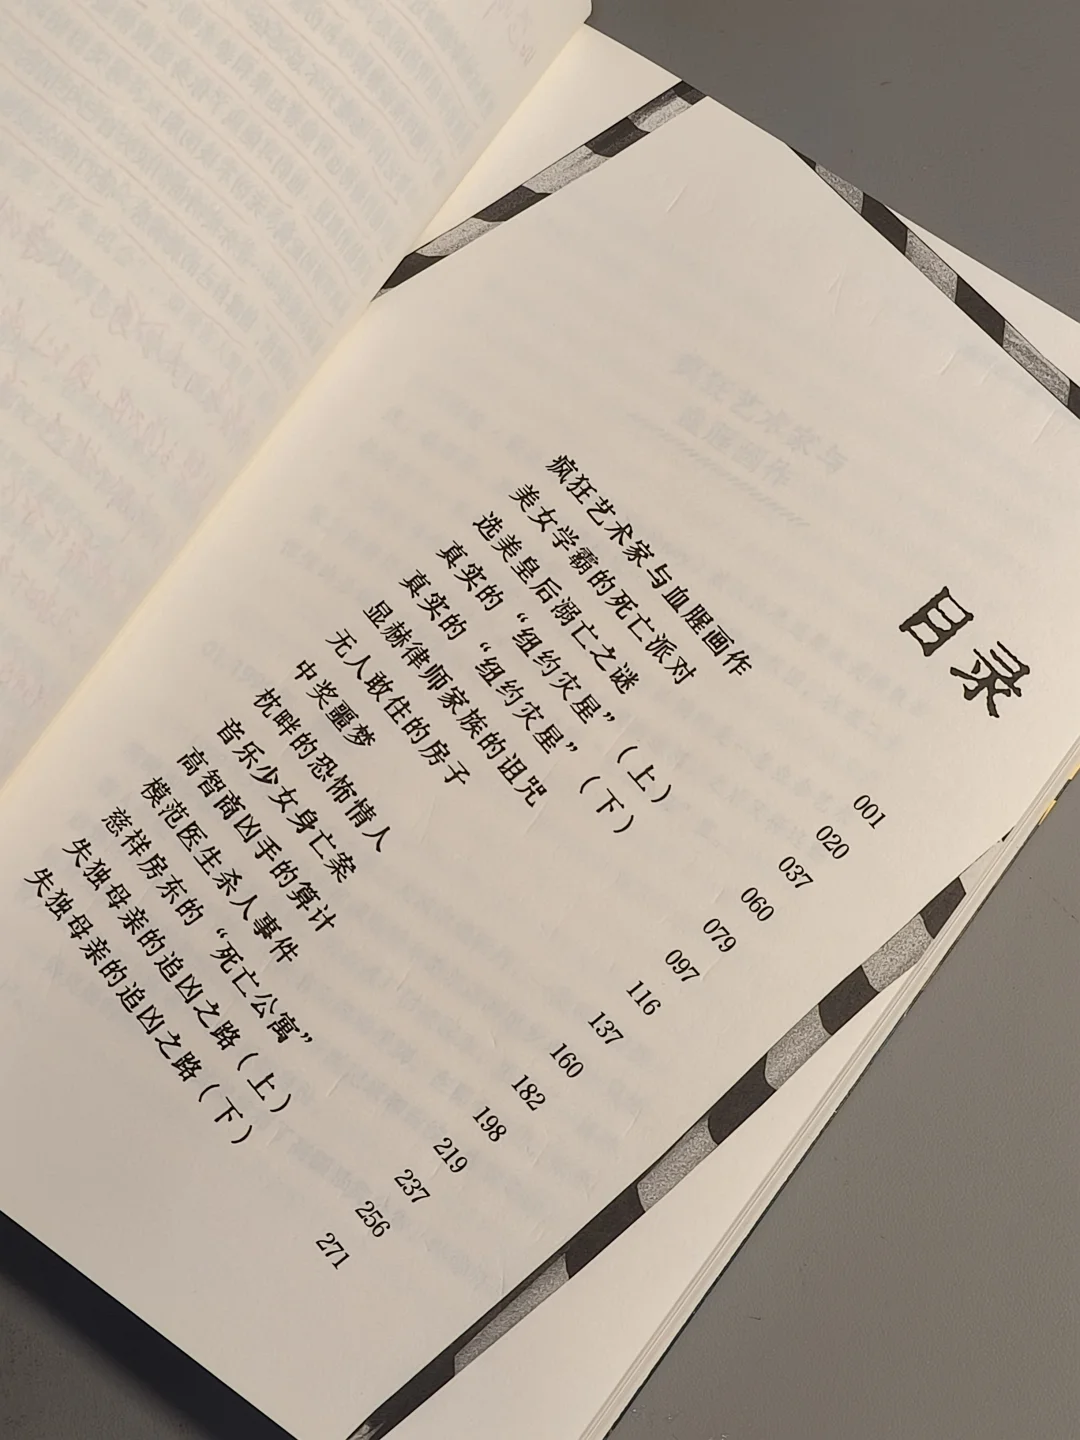 目录
疯狂艺术家与血腥画作 001
美女学霸的死亡派对 020
选美皇后溺亡之谜 037
真实的“纽约灾星”（上） 060
真实的“纽约灾星”（下） 079
显赫律师家族的诅咒 097
无人敢住的房子 116
中奖噩梦 137
枕畔的恐怖情人 160
音乐少女身亡案 182
高智商凶手的算计 198
模范医生杀人事件 219
慈祥房东的“死亡公寓” 237
失独母亲的追凶之路（上） 256
失独母亲的追凶之路（下） 271